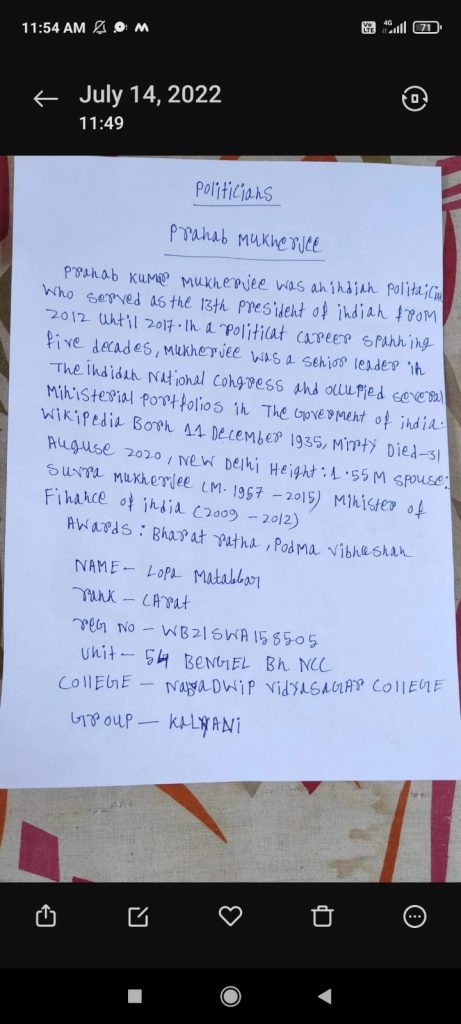 11:54 AM
Vo LTE 4G 71
July 14, 2022
11:49
Politicians
Pranab Mukherjee
Pranab Kumar Mukherjee was an indian Politaicin
who served as the 13th President of indian from
2012 until 2017. In a Politicat career spanning
five decades, Mukherjee was a senior leader in
The indidan National congress and occupied several
Ministerial Portfolios in The Goverment of india.
Wikipedia Born 11 December 1935, Mirty Died-31
Auguse 2020, New Delhi Height: 1.55 M spouse:
Suvra Mukherjee (M. 1957 - 2015) Minister of
Finance of india (2009 - 2012)
Awards: Bharat ratna, Podma vibhushan
NAME - Lopa Matabbar
rank - CArat
reg No - WB21SWA158505
Unit - 54 BENGEL Bn NCC
COllEGE - NabaDWip VidyasaGar COllEGE
Group - KALYANI